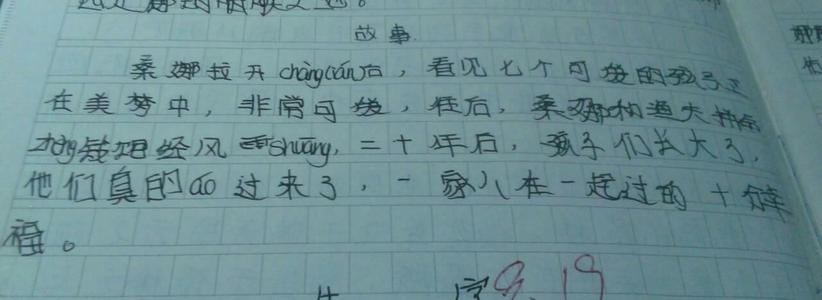 故事
桑娜拉开chàngcián后，看见七个可爱的孩子正
在美梦中，非常可爱，往后，桑娜和渔夫拼命
zhèng钱饱经风雨shuāng，二十年后，孩子们长大了，
他们真的áo过来了，一家人在一起过的十分幸
福。